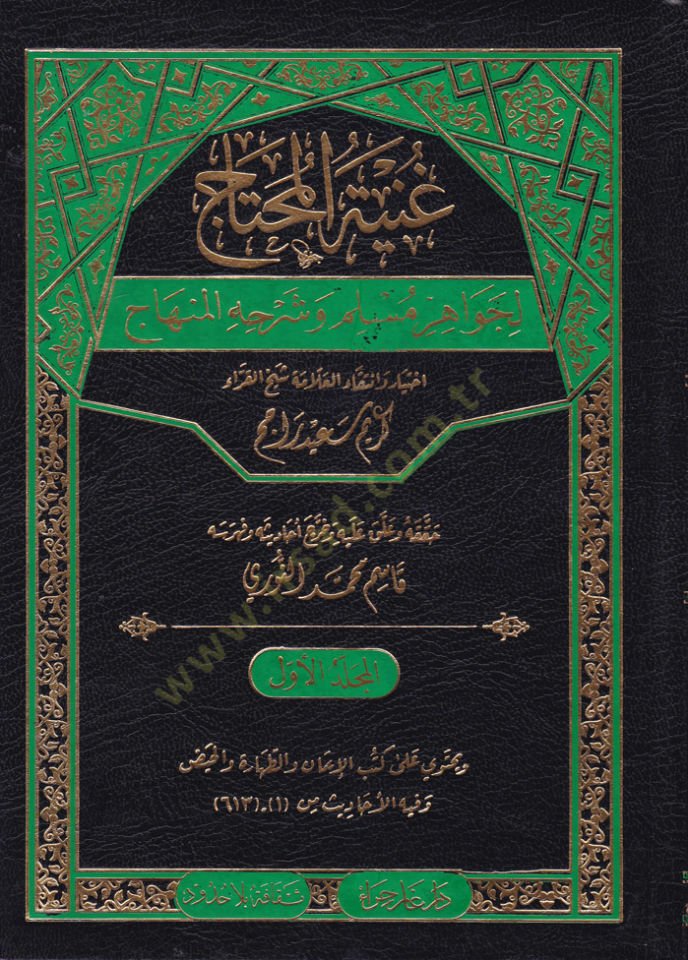 غُنْيَةُ المُحْتَاجِ
لِجَوَاهِرِ مُسْلِم وَشَرْحِهِ المِنْهَاج
اختيار وانتقاء العلامة شيخ القراء
كريم سعيد راجح
حَقَّقَهُ وعَلَّقَ عَلَيهِ وَخَرَّجَ أحَاديثه وفهرسه
قاسم محمد النوري
المجلد الأوَّل
ويحتوي على كتب الإيمان والطهارة والحيض
وفيه الأحاديث من (١) - (٦١٣)
دار غار حراء
ثقافة بلا حدود
www.irsad.com.tr